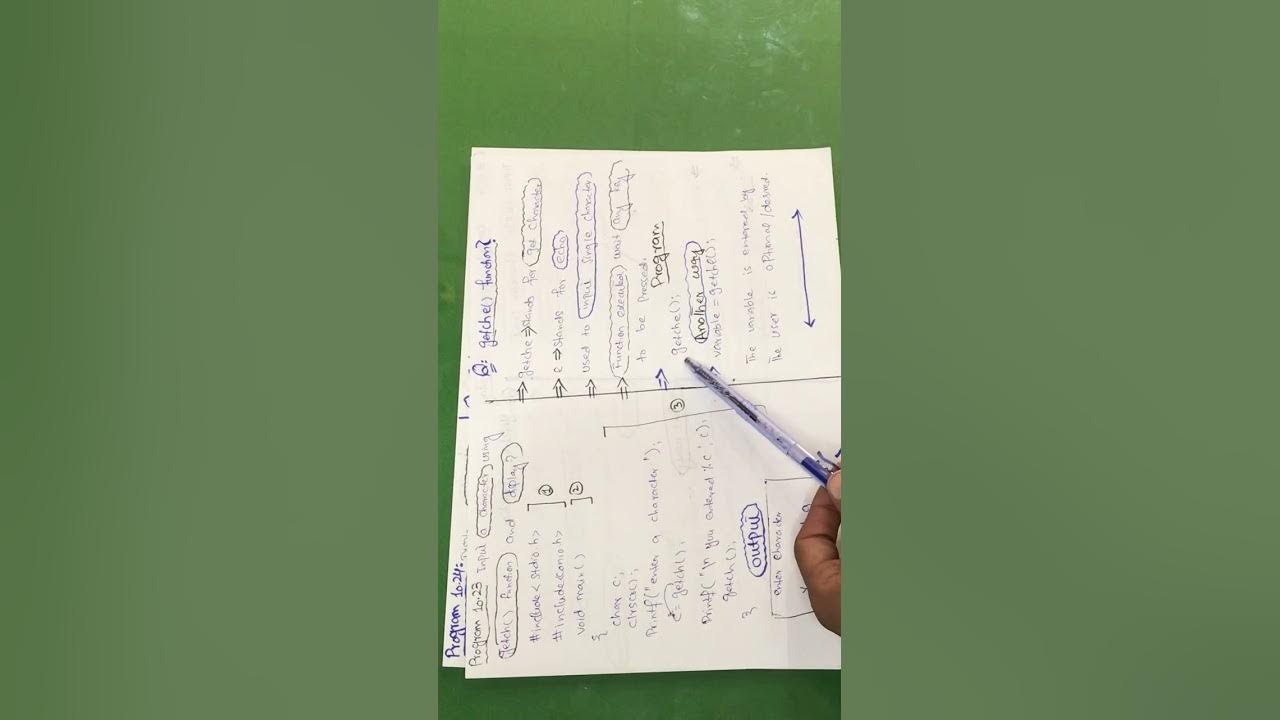 Program 10.24:
Program 10.23 Input a character using
getch() function and display?
#include<stdio.h> ] ①
#include<conio.h> ] ②
void main()
{
char c;
clrscr();
printf("enter a character");
c = getch();
③
printf("\n you entered %c", c);
getch();
}
output
enter character
Q: getche() function?
⇒ getche ⇒ stands for get character
⇒ e ⇒ stands for echo
⇒ used to input single character
⇒ function executed, wait any key
to be pressed.
Program
⇒ getche();
Another way
variable = getche();
The variable is entered by
The user is optional/desired.